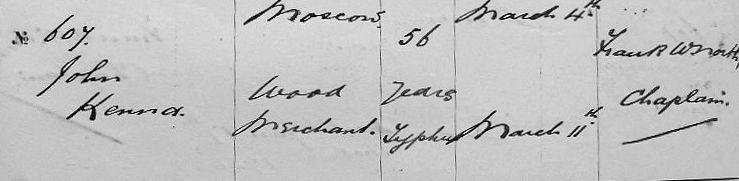 № 607.
John
Kenna.
Moscow,
Wood
Merchant.
56
Years
Typhus
March 4th.
March 11th.
Frank W North,
Chaplain.